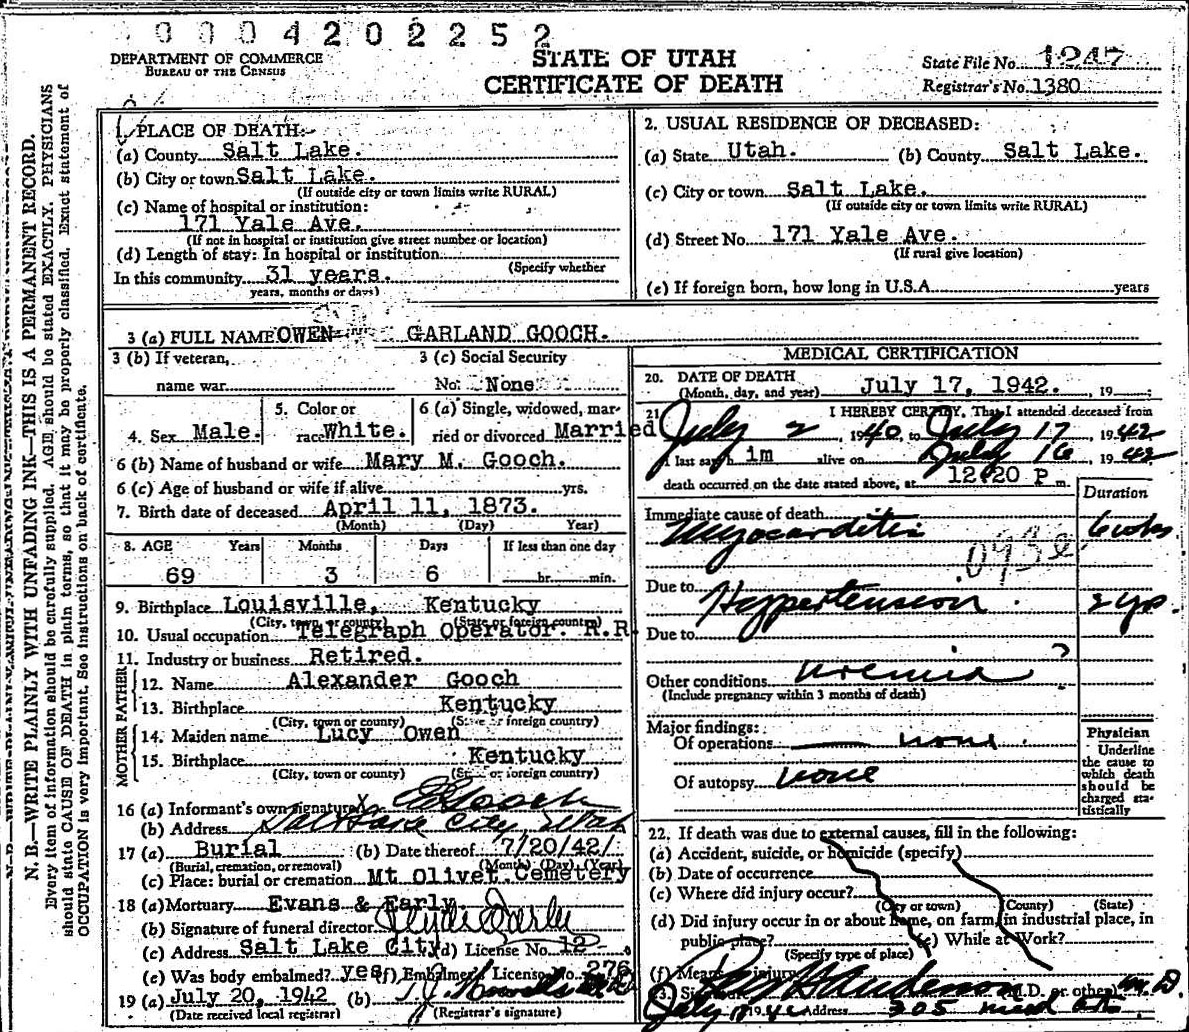 0 0 0 4 2 0 2 2 5 2
DEPARTMENT OF COMMERCE
BUREAU OF THE CENSUS
STATE OF UTAH
CERTIFICATE OF DEATH
State File No. 1247
Registrar's No. 1380
N. B.—WRITE PLAINLY WITH UNFADING INK—THIS IS A PERMANENT RECORD.
Every item of information should be carefully supplied. AGE should be stated EXACTLY. PHYSICIANS
should state CAUSE OF DEATH in plain terms, so that it may be properly classified. Exact statement of
OCCUPATION is very important. See instructions on back of certificate.
1. PLACE OF DEATH:
(a) County Salt Lake.
(b) City or town Salt Lake.
(If outside city or town limits write RURAL)
(c) Name of hospital or institution:
171 Yale Ave.
(If not in hospital or institution give street number or location)
(d) Length of stay: In hospital or institution
(Specify whether
In this community 31 years.
years, months or days)
2. USUAL RESIDENCE OF DECEASED:
(a) State Utah. (b) County Salt Lake.
(c) City or town Salt Lake.
(If outside city or town limits write RURAL)
(d) Street No. 171 Yale Ave.
(If rural give location)
(e) If foreign born, how long in U.S.A. years
3 (a) FULL NAME OWEN GARLAND GOOCH.
3 (b) If veteran,
name war
3 (c) Social Security
No. None
4. Sex Male.
5. Color or
race White.
6 (a) Single, widowed, mar-
ried or divorced Married
6 (b) Name of husband or wife Mary M. Gooch.
6 (c) Age of husband or wife if alive yrs.
7. Birth date of deceased April 11, 1873.
(Month) (Day) Year)
8. AGE Years Months Days If less than one day
69 3 6 hr. min.
9. Birthplace Louisville, Kentucky
(City, town, or county) (State or foreign country)
10. Usual occupation Telegraph Operator. R.R.
11. Industry or business Retired.
FATHER
12. Name Alexander Gooch
13. Birthplace Kentucky
(City, town or county) (State or foreign country)
MOTHER
14. Maiden name Lucy Owen
15. Birthplace Kentucky
(City, town or county) (State or foreign country)
16 (a) Informant's own signature X Gooch
(b) Address Salt Lake City Utah
17 (a) Burial (b) Date thereof 7/20/42/
(Burial, cremation, or removal) (Month) (Day) (Year)
(c) Place: burial or cremation Mt Olivet Cemetery
18 (a) Mortuary Evans & Early
(b) Signature of funeral director Clyde Early
(c) Address Salt Lake City (d) License No. 12
(e) Was body embalmed? yes (f) Embalmer License No. 276
19 (a) July 20, 1942 (b)
(Date received local registrar) (Registrar's signature)
MEDICAL CERTIFICATION
20. DATE OF DEATH
(Month, day, and year) July 17, 1942. 19
21 I HEREBY CERTIFY, That I attended deceased from
July 2, 1940, to July 17 1942
I last saw him alive on July 16, 1942
death occurred on the date stated above, at 12:20 P m.
Duration
Immediate cause of death
Myocarditis 6 wks
.093e
Due to Hypertension 2 yrs.
Due to
Other conditions Uremia ?
(Include pregnancy within 3 months of death)
Major findings:
Of operations none
Of autopsy none
Physician
Underline
the cause to
which death
should be
charged sta-
tistically
22. If death was due to external causes, fill in the following:
(a) Accident, suicide, or homicide (specify)
(b) Date of occurrence
(c) Where did injury occur?
(City or town) (County) (State)
(d) Did injury occur in or about home, on farm, in industrial place, in
public place? (e) While at Work?
(Specify type of place)
(f) Means injury
23. Anderson M.D.
(M.D. or other)
July 19 42 Address 305